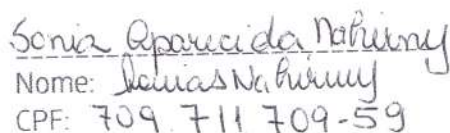 Sonia Aparecida Nahirny
Nome: Nahirny
CPF: 709.711709-59